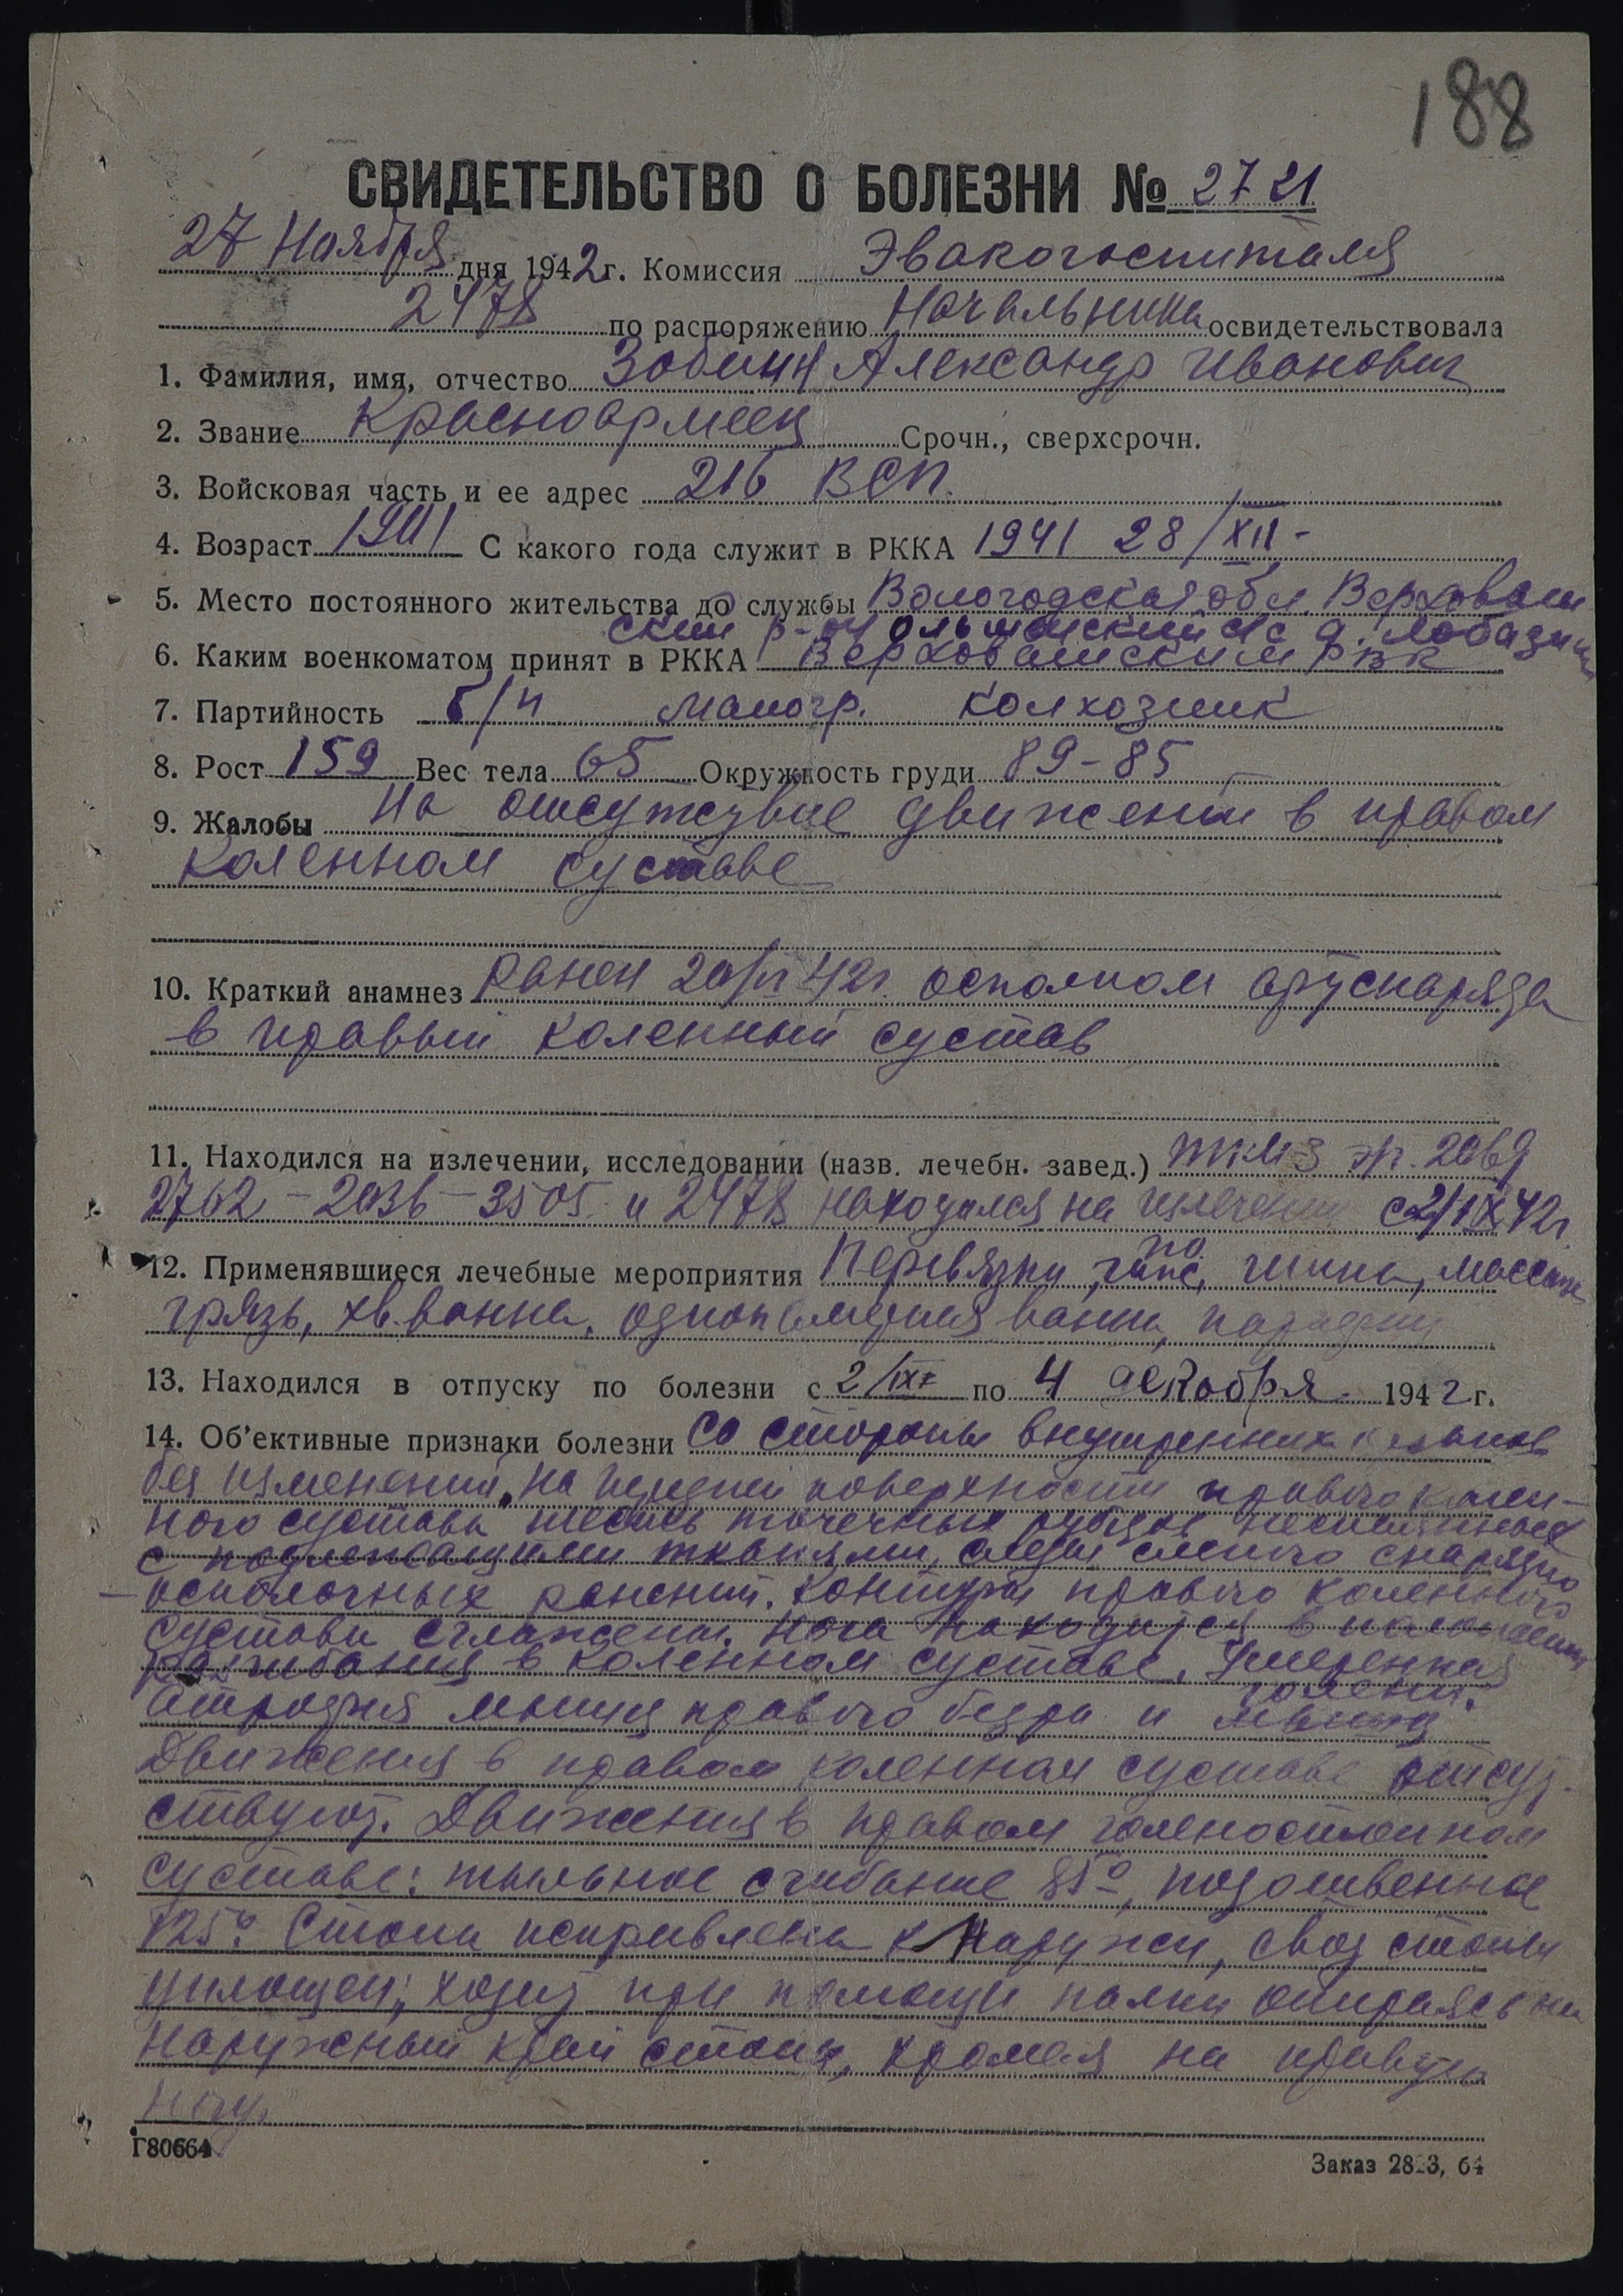 188
СВИДЕТЕЛЬСТВО О БОЛЕЗНИ № 2721
27 Ноября дня 1942 г. Комиссия Эвакогоспиталя
2478 по распоряжению Начальника освидетельствовала
1. Фамилия, имя, отчество Зобнин Александр Иванович
2. Звание Красноармеец Срочн., сверхсрочн.
3. Войсковая часть и ее адрес 216 ВСП.
4. Возраст 1901 С какого года служит в РККА 1941 28/XII -
5. Место постоянного жительства до службы Вологодская обл. Верховаж
ский р-н с/с д.
6. Каким военкоматом принят в РККА Верховажским РВК
7. Партийность б/п малогр. колхозник
8. Рост 159 Вес тела 65 Окружность груди 89-85
9. Жалобы На отсутствие движений в правом
коленном суставе
10. Краткий анамнез Ранен 42г. осколком артснаряда
в правый коленный сустав
11. Находился на излечении, исследовании (назв. лечебн. завед.)
2762 - 2036 - 3505 и 2478 находился на излечении с 2/IX 42г.
12. Применявшиеся лечебные мероприятия Перевязки, гипс, шина, массаж
грязь, хв. ванна,
13. Находился в отпуску по болезни с 2/IX по 4 декабря 1942 г.
14. Об'ективные признаки болезни Со стороны внутренних органов
без изменений. На передней поверхности правого колен-
ного сустава шесть точечных рубцов неспаянных
с подлежащими тканями, следы слепого снарядно
-осколочных ранений. Контуры правого коленного
сустава сглажены. Нога находится в положении
разгибания в коленном суставе. Умеренная
голени.
атрофия мышц правого бедра и
Движения в правом коленном суставе отсут-
ствуют. Движения в правом голеностопном
суставе: тыльное сгибание 85°, подошвенное
125°. Стопа исправлена к наружи, свод стопы
уплощен, ходит при помощи палки опираясь на
наружный край стопы, хромая на правую
ногу.
Г80664 Заказ 2823, 64